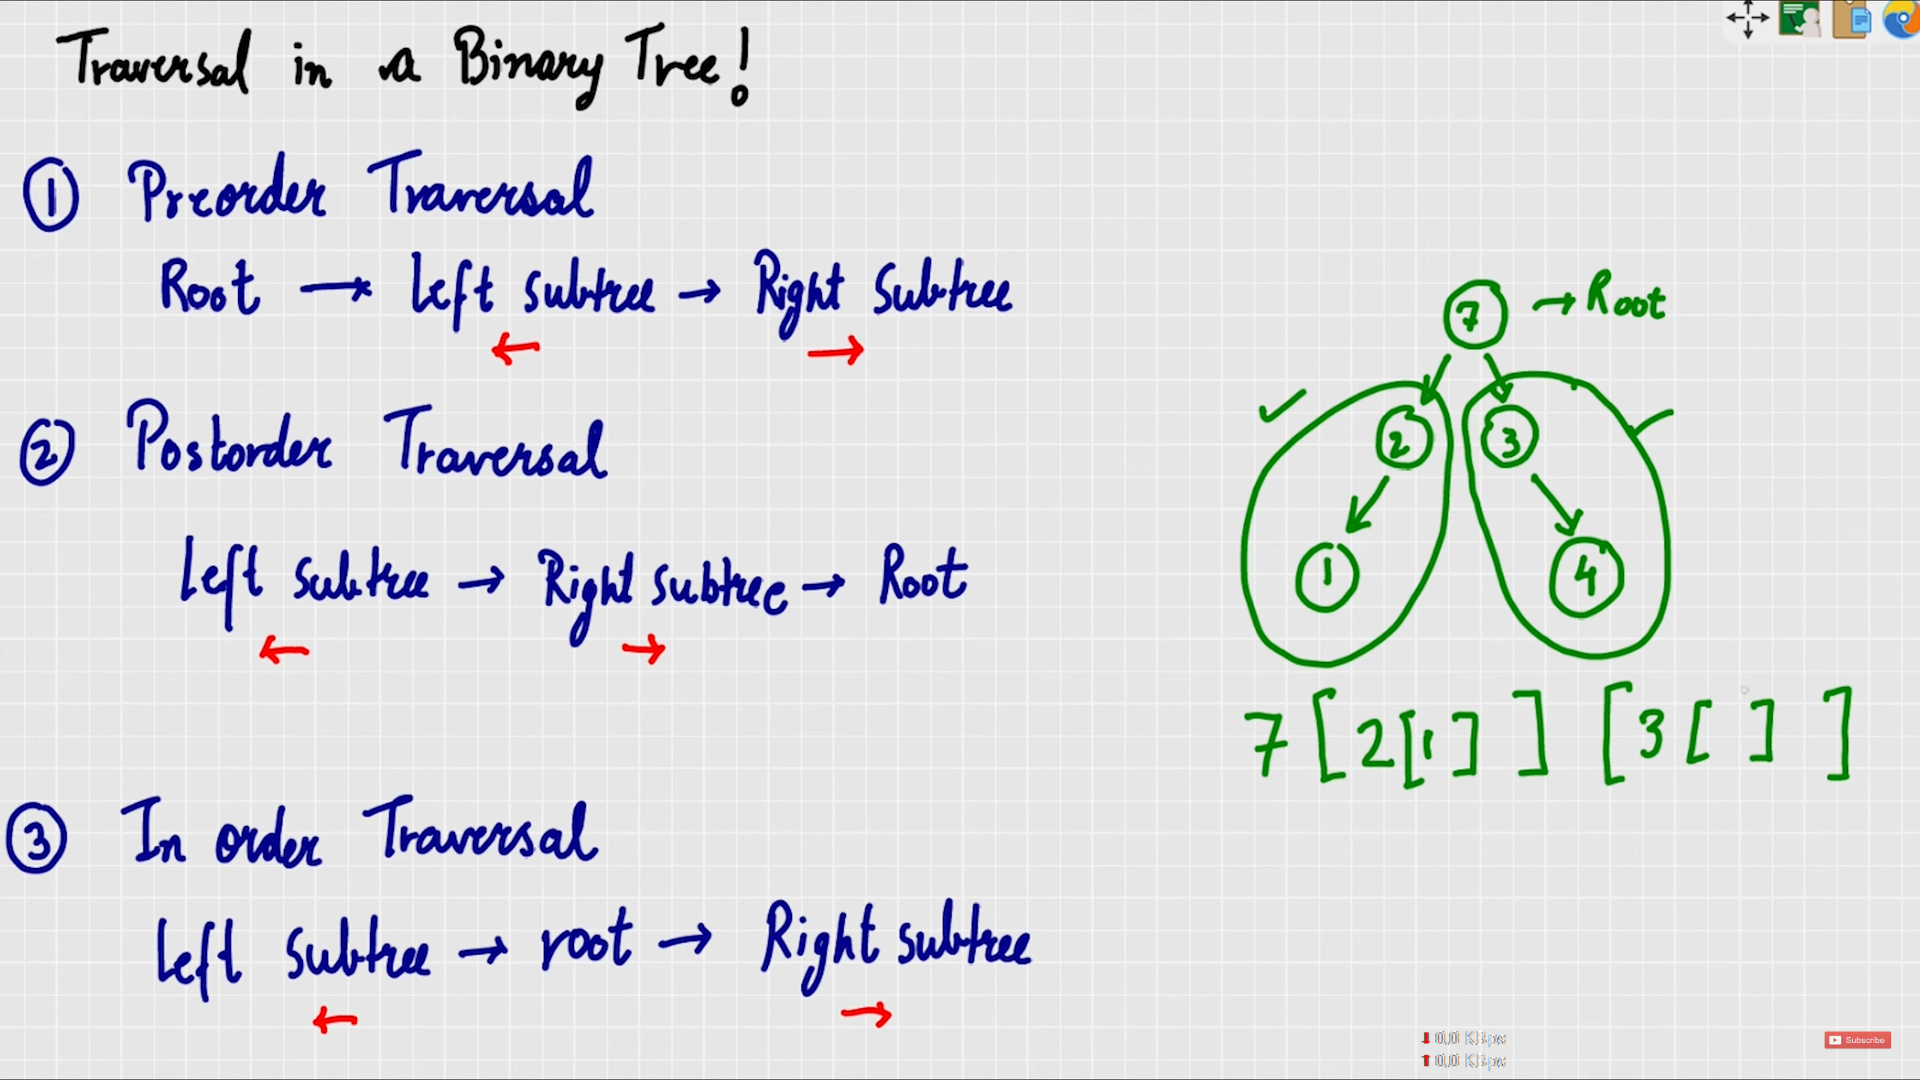 Traversal in a Binary Tree!
① Preorder Traversal
Root → Left subtree → Right Subtree
② Postorder Traversal
Left subtree → Right subtree → Root
③ In order Traversal
Left Subtree → root → Right subtree
7 → Root
2 3
1 4
7 [ 2 [ 1 ] ] [ 3 [ ] ]
0.0 KBps
0.0 KBps
Subscribe